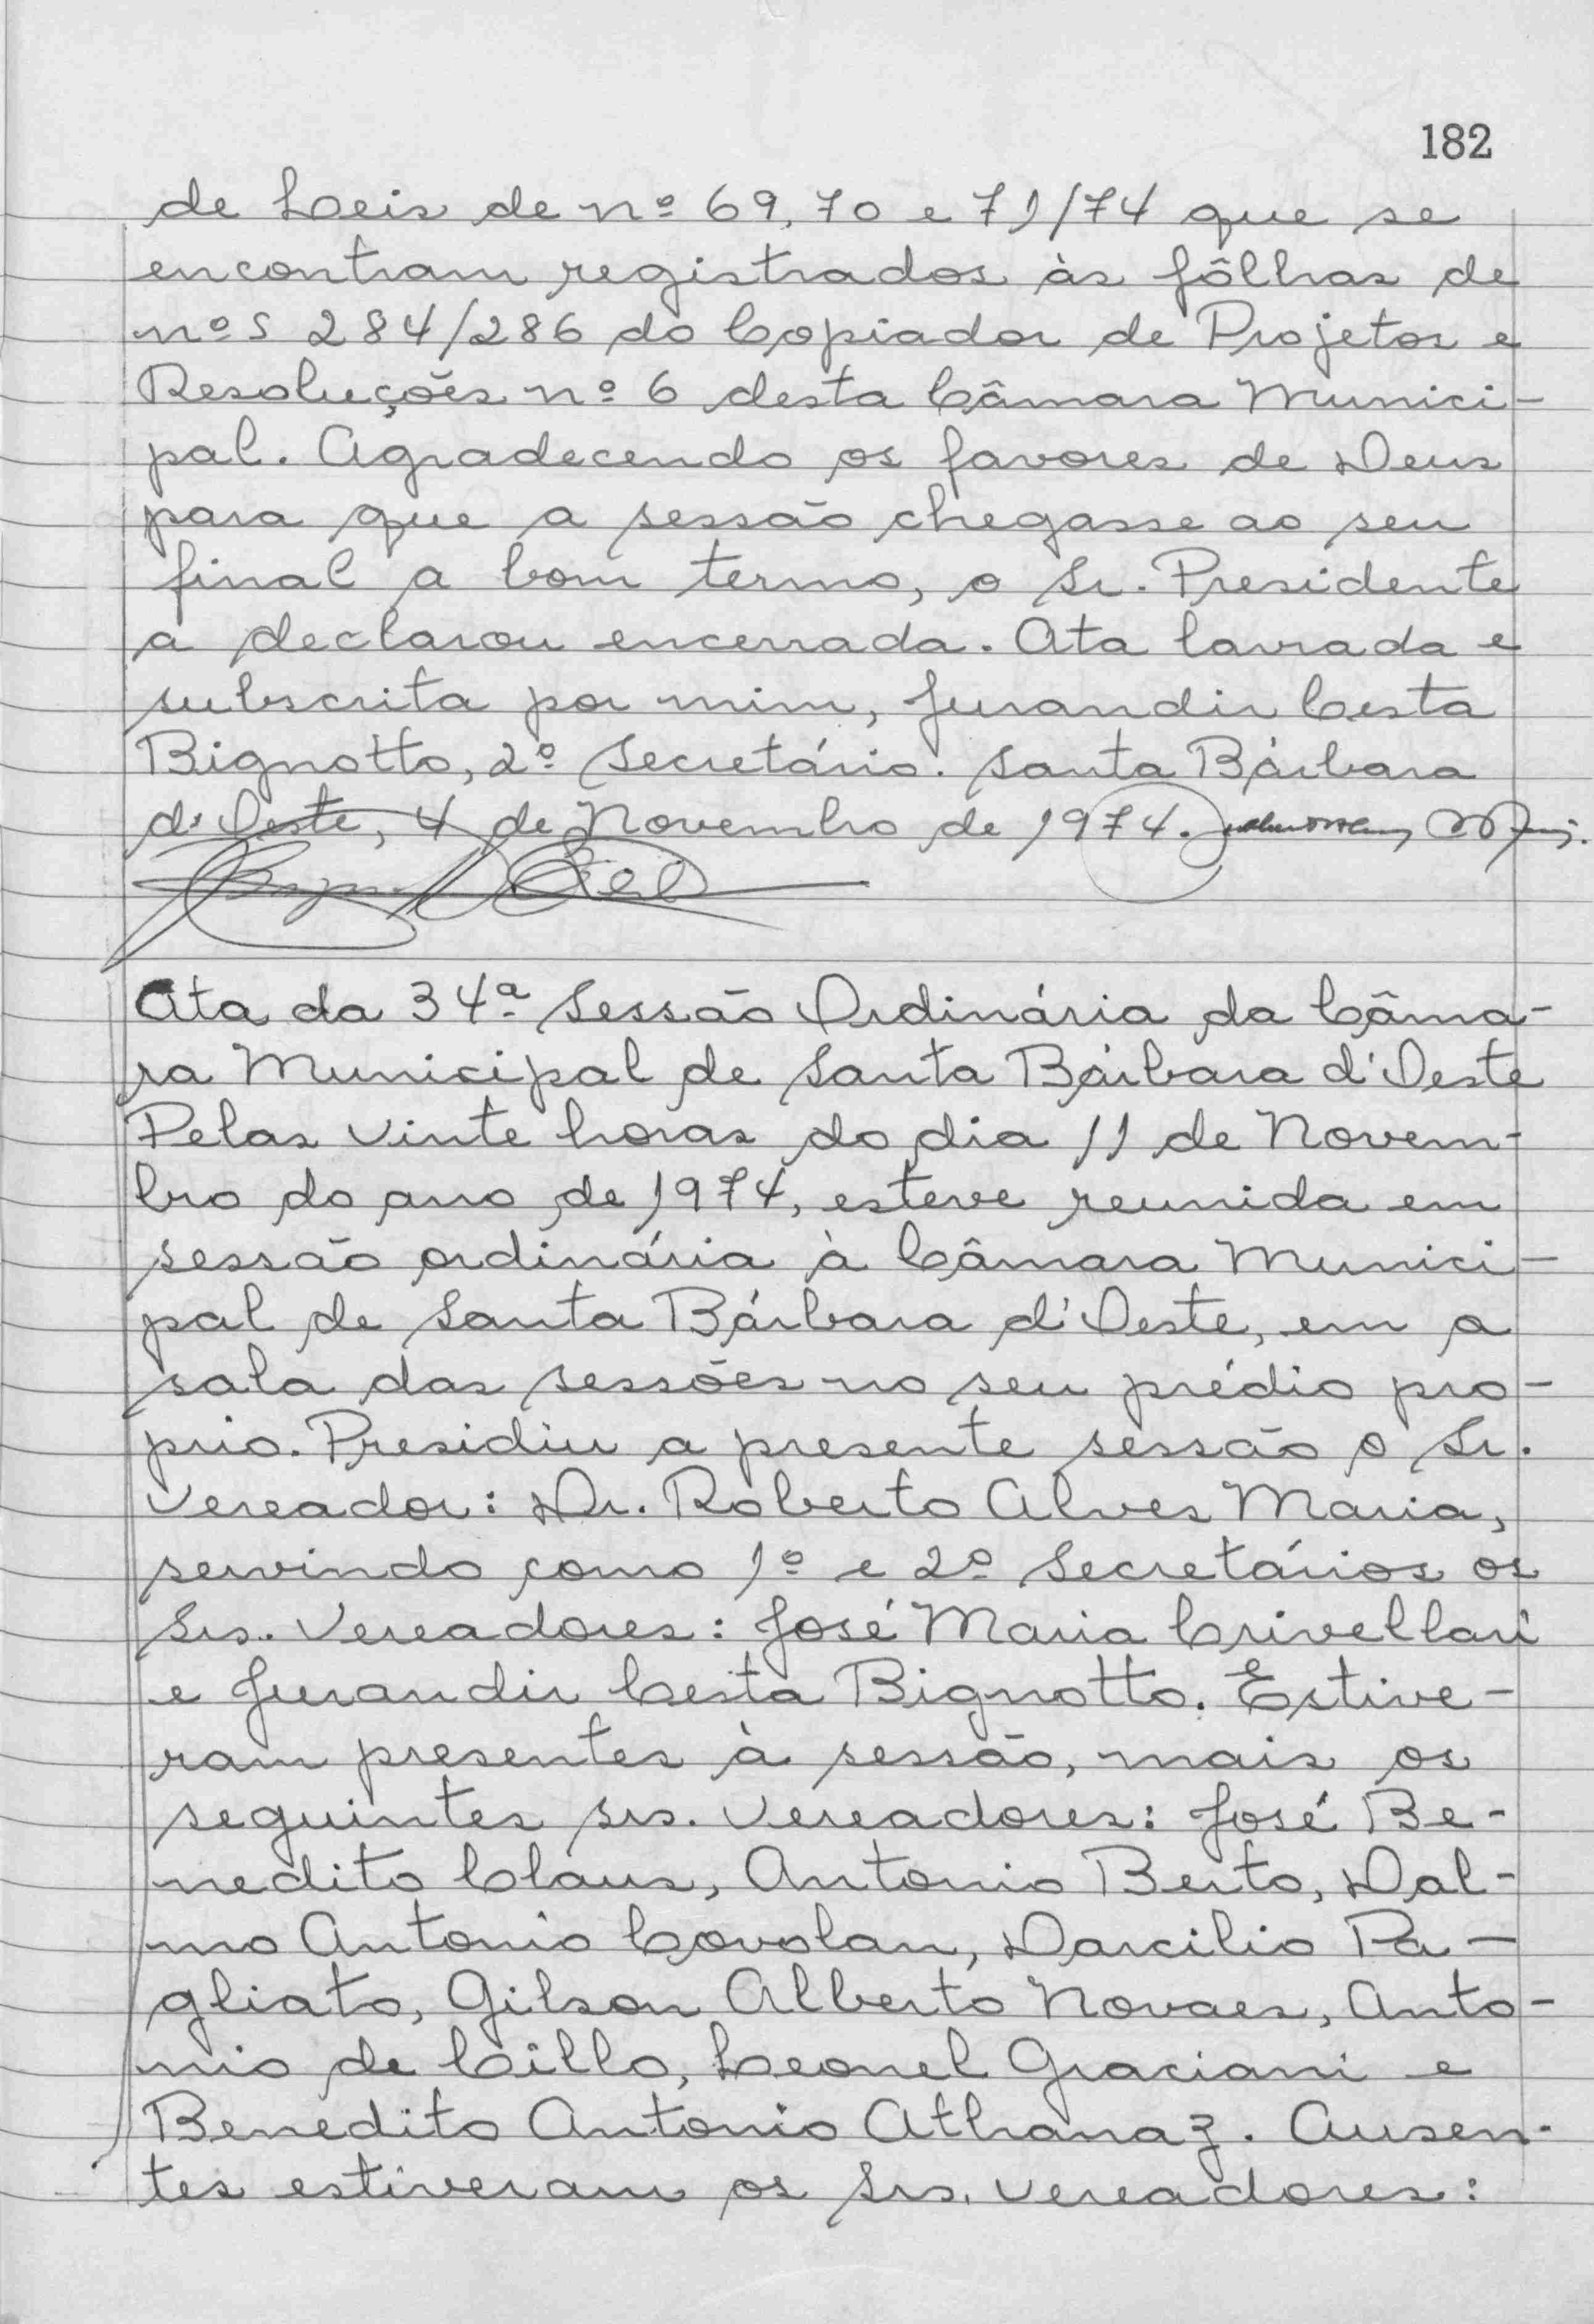 182
de Leis de nº 69, 70 e 71/74 que se
encontram registrados às fôlhas de
nºs 284/286 do Copiador de Projetos e
Resoluções nº 6 desta Câmara Munici-
pal. Agradecendo os favores de Deus
para que a sessão chegasse ao seu
final a bom termo, o Sr. Presidente
a declarou encerrada. Ata lavrada e
subscrita por mim, Jurandir Cesta
Bignotto, 2º Secretário. Santa Bárbara
d'Oeste, 4 de Novembro de 1974.
Ata da 34ª Sessão Ordinária da Câma-
ra Municipal de Santa Bárbara d'Oeste
Pelas vinte horas do dia 11 de Novem-
bro do ano de 1974, esteve reunida em
sessão ordinária à Câmara Munici-
pal de Santa Bárbara d'Oeste, em a
sala das sessões no seu prédio pro-
prio. Presidiu a presente sessão o Sr.
Vereador: Dr. Roberto Alves Maria,
servindo como 1º e 2º Secretários os
Srs. Vereadores: José Maria Crivellari
e Jurandir Cesta Bignotto. Estive-
ram presentes à sessão, mais os
seguintes srs. Vereadores: José Be-
nedito Claus, Antonio Berto, Dal-
mo Antonio Covolan, Darcilio Pa-
gliato, Gilson Alberto Novaes, Anto-
nio de Cillo, Leonel Graciani e
Benedito Antonio Athanaz. Ausen-
tes estiveram os Srs. vereadores: